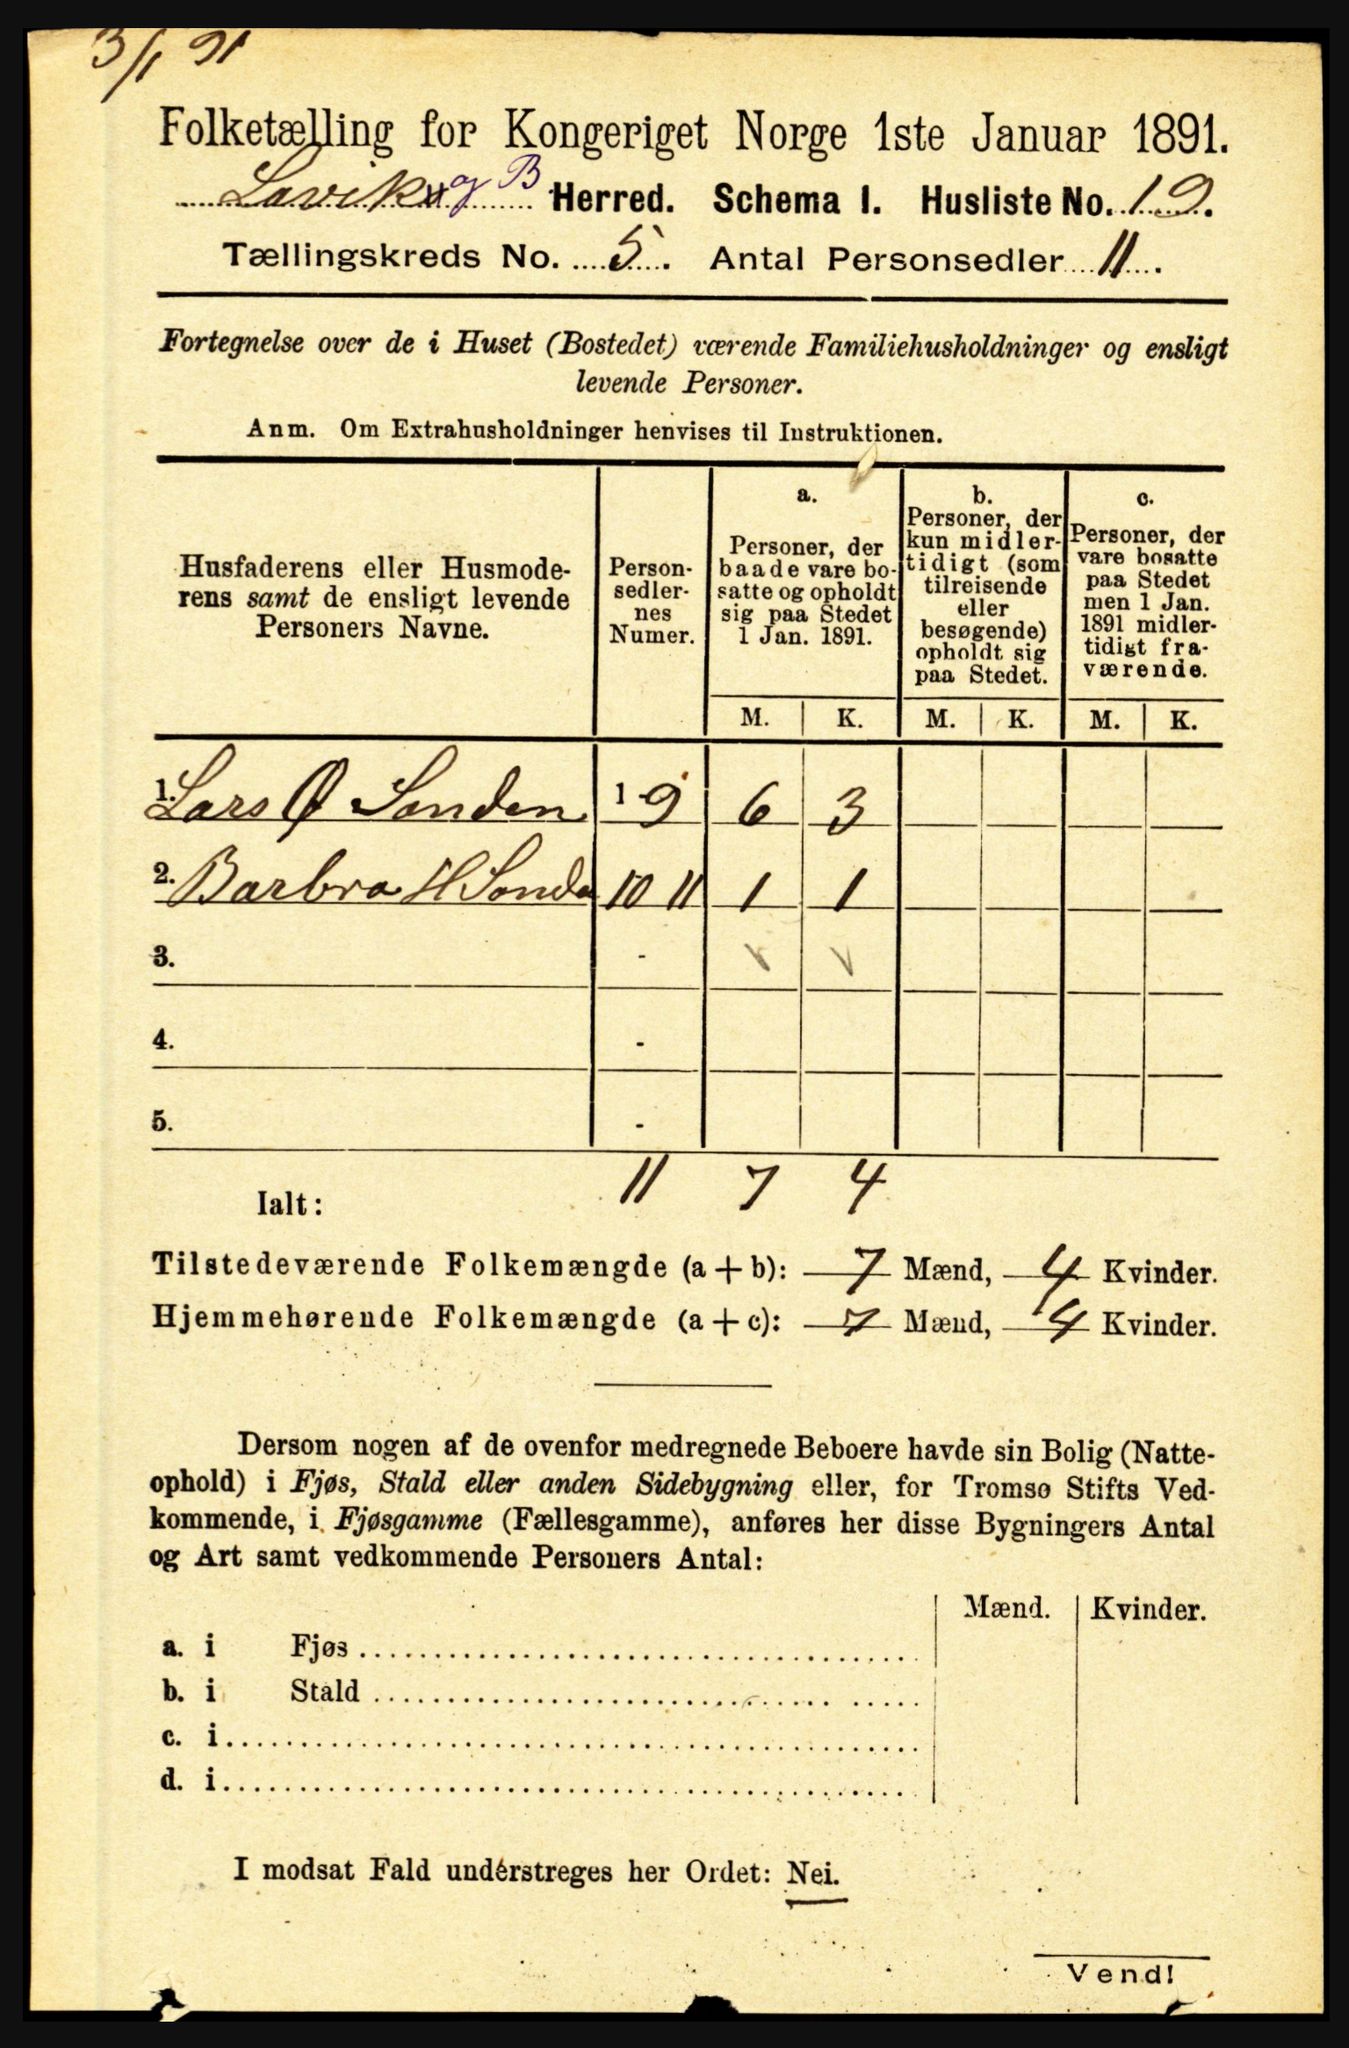 3/1 91
Folketælling for Kongeriget Norge 1ste Januar 1891.
Lavik og B Herred. Schema I. Husliste No. 19.
Tællingskreds No. 5. Antal Personsedler 11.
Fortegnelse over de i Huset (Bostedet) værende Familiehusholdninger og ensligt
levende Personer.
Anm. Om Extrahusholdninger henvises til Instruktionen.
Husfaderens eller Husmode-
rens samt de ensligt levende
Personers Navne.
Person-
sedler-
nes
Numer.
a.
Personer, der
baade vare bo-
satte og opholdt
sig paa Stedet
1 Jan. 1891.
b.
Personer, der
kun midler-
tidigt (som
tilreisende
eller
besøgende)
opholdt sig
paa Stedet.
c.
Personer, der
vare bosatte
paa Stedet
men 1 Jan.
1891 midler-
tidigt fra-
værende.
M. K. M. K. M. K.
1. Lars Ø Sanden 1-9 6 3
2. Barbra H Sande 10 11 1 1
3. -
4. -
5. -
Ialt: 11 7 4
Tilstedeværende Folkemængde (a+b): 7 Mænd, 4 Kvinder.
Hjemmehørende Folkemængde (a+c): 7 Mænd, 4 Kvinder.
Dersom nogen af de ovenfor medregnede Beboere havde sin Bolig (Natte-
ophold) i Fjøs, Stald eller anden Sidebygning eller, for Tromsø Stifts Ved-
kommende, i Fjøsgamme (Fællesgamme), anføres her disse Bygningers Antal
og Art samt vedkommende Personers Antal:
Mænd. Kvinder.
a. i Fjøs
b. i Stald
c. i
d. i
I modsat Fald understreges her Ordet: Nei.
Vend!